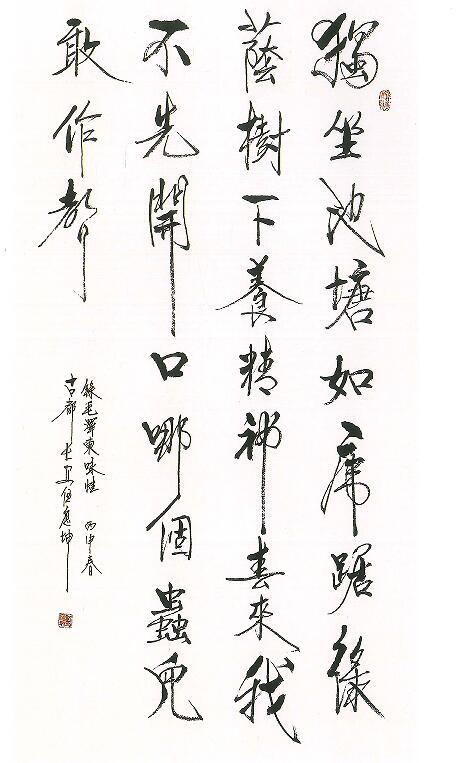 獨坐池塘如虎踞綠
蔭樹下養精神春來我
不先開口哪個蟲兒
敢作聲
錄毛澤東咏蛙 丙申春
古都長安